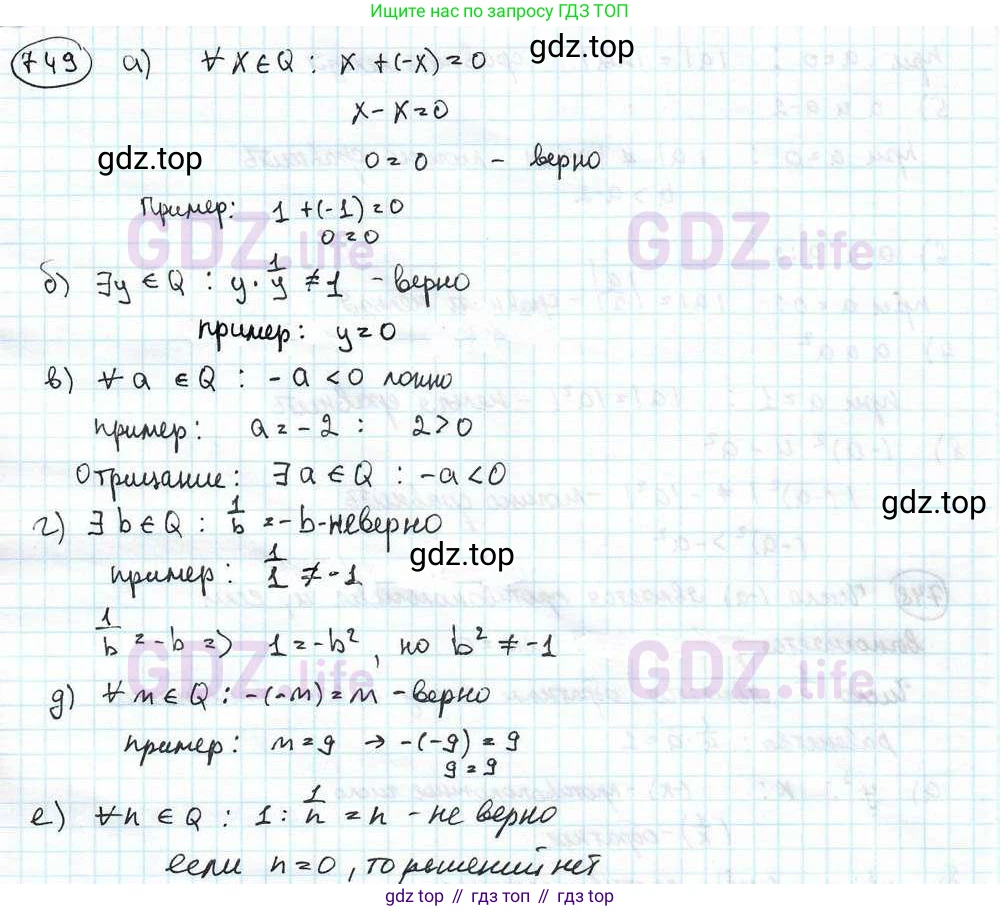 Ищите нас по запросу ГДЗ ТОП
749 а) ∀ x ∈ Q : x + (-x) = 0
gdz.top
x - x = 0
gdz.top
0 = 0 - верно
Пример: 1 + (-1) = 0
0 = 0
GDZ.life GDZ.life
б) ∃y ∈ Q : y · 1/y ≠ 1 - верно
пример: y = 0
в) ∀ a ∈ Q : - a < 0 ложно
пример: a = - 2 : 2 > 0
Отрицание: ∃ a ∈ Q : - a < 0
gdz.top
г) ∃ b ∈ Q : 1/b = - b - неверно
gdz.top
пример: 1/1 ≠ - 1
1/b = - b => 1 = - b², но b² ≠ - 1
GDZ.life GDZ.life
д) ∀ m ∈ Q : - (-m) = m - верно
пример: m = 9 → - (-9) = 9
9 = 9
е) ∀ n ∈ Q : 1 : 1/n = n - не верно
если n = 0, то решений нет
gdz.top // gdz.top // gdz.top